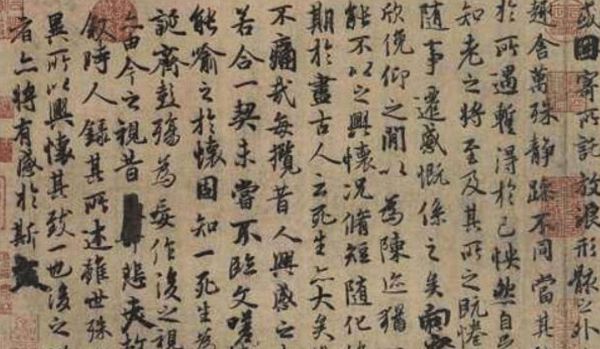 或因寄所託放浪形骸之外
趣舍萬殊靜躁不同當其
於所遇蹔得於己怏然自
知老之將至及其所之既惓
隨事遷感慨係之矣向
欣俛仰之閒以為陳迹猶
能不以之興懷況脩短隨化
期於盡古人云死生亦大矣
不痛哉每攬昔人興感之
若合一契未嘗不臨文嗟
能喻之於懷固知一死生為
誕齊彭殤為妄作後之視
亦由今之視昔悲夫故
敘時人錄其所述雖世殊
異所以興懷其致一也後之
者亦將有感於斯文